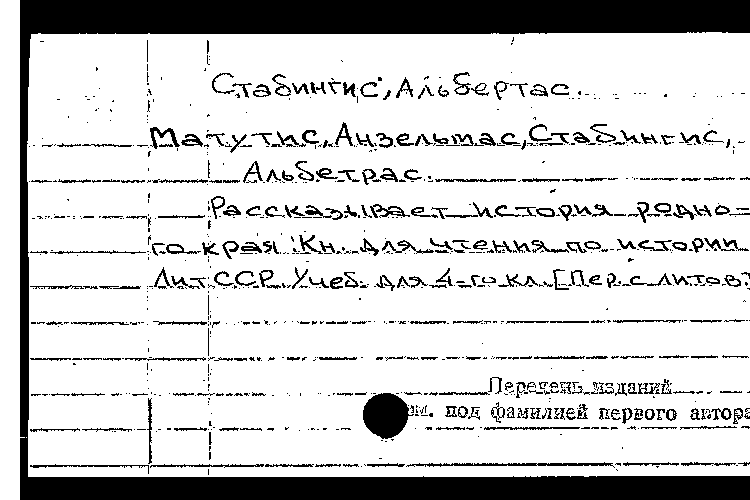 Стабингис, Альбертас.
Матутис, Анзельмас, Стабингис,
Альбетрас.
Рассказывает история родно-
го края : Кн. для чтения по истории
ЛитССР. Учеб. для 4-го кл. [Пер. с литов.]
Перечень изданий
см. под фамилией первого автора